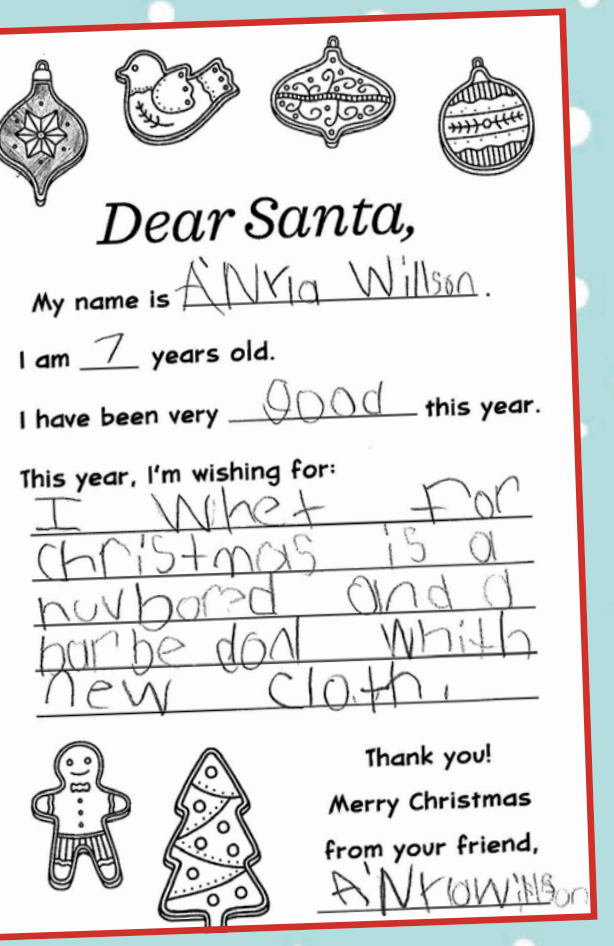 Dear Santa,
My name is A'Nria Willson.
I am 7 years old.
I have been very good this year.
This year, I'm wishing for:
I Whet For
christmas is a
huvbored and a
barbe doal Whith
new cloth.
Thank you!
Merry Christmas
from your friend,
A'NriaWillson